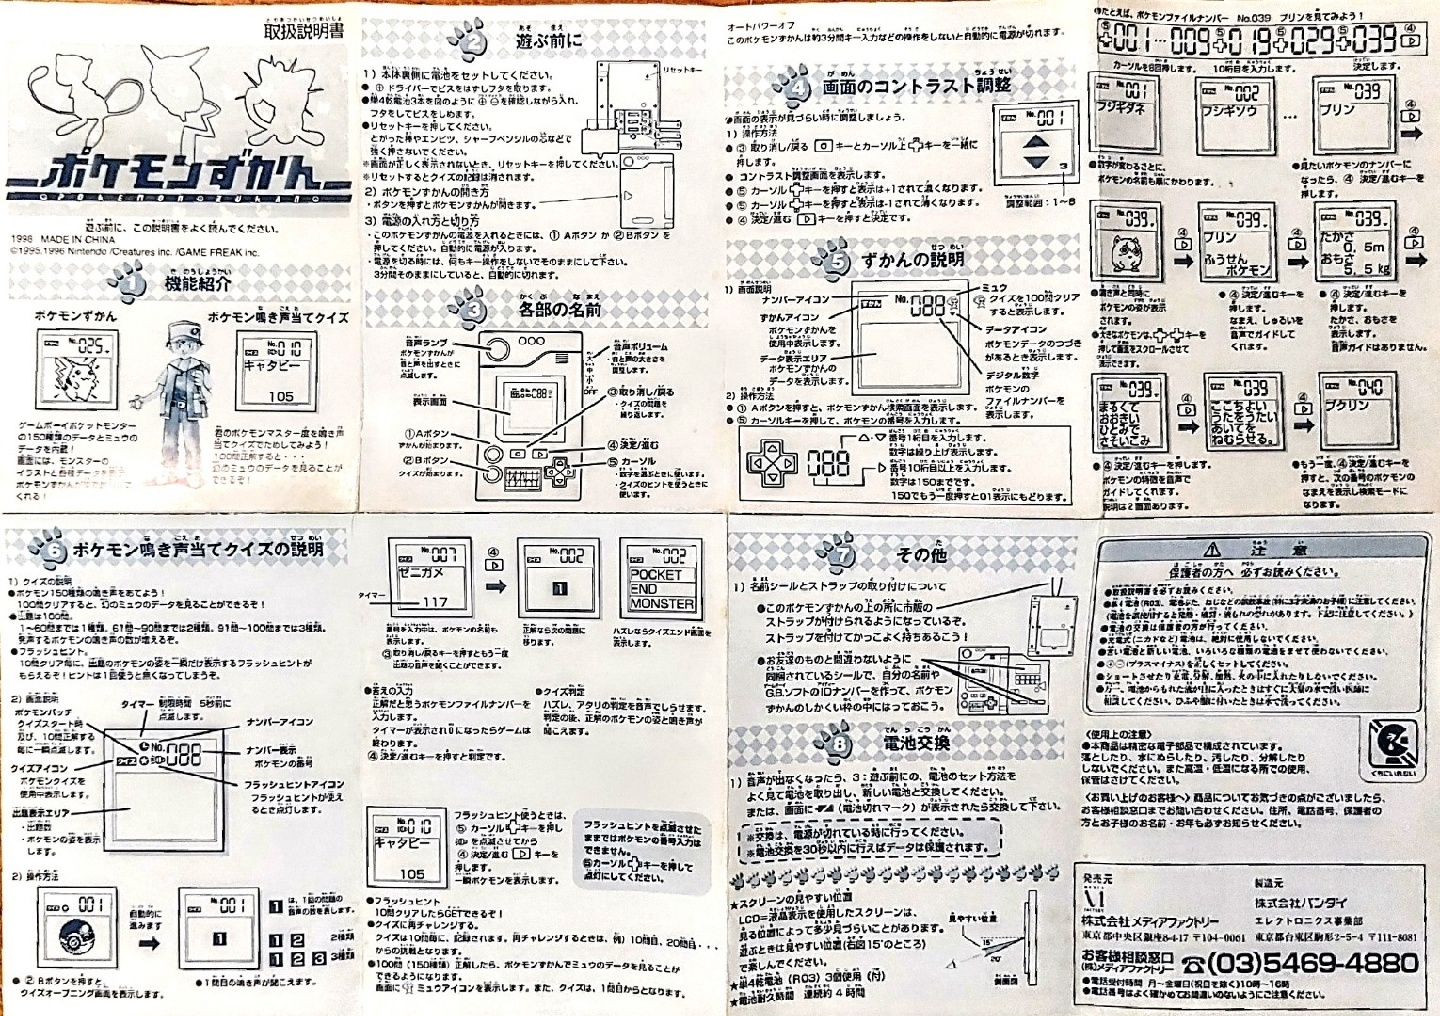 取扱説明書
ポケモンずかん
POKEMON ZUKAN
遊ぶ前に、この説明書をよく読んでください。
1998 MADE IN CHINA
©1995,1996 Nintendo /Creatures inc. /GAME FREAK inc.
1 機能紹介
ポケモンずかん
No.025
ポケモン鳴き声当てクイズ
クイズ 010
キャタピー
105
ゲームボーイポケットモンスター
の150種類のデータとミュウの
データを内蔵!
画面には、モンスターの
くれる!
君のポケモンマスター度を鳴き声
当てクイズでためしてみよう!
100問正解すると・・・
幻のミュウのデータを見ることが
できるぞ!
2 遊ぶ前に
1)本体裏側に電池をセットしてください。
●① ドライバーでビスをはずしフタを取ります。
●単4乾電池3本を図のように⊕⊖を確認しながら入れ、
フタをしてビスをしめます。
●リセットキーを押してください。
とがった棒やエンピツ、シャープペンシルの芯などで
強く押さないでください。
※画面が正しく表示されないとき、リセットキーを押してください。
※リセットするとクイズの記録は消されます。
リセットキー
2)ポケモンずかんの開き方
・ボタンを押すとポケモンずかんが開きます。
3)電源の入れ方と切り方
・このポケモンずかんの電源を入れるときには、①Aボタン か ②Bボタン を
押してください。自動的に電源が入ります。
・電源を切る時には、何もキー操作をしないでそのままにして下さい。
3分間そのままにしていると、自動的に切れます。
3 各部の名前
音声ランプ
ポケモンずかんが
音と声を出すときに
点滅します。
表示画面
①Aボタン
ずかんが始まります。
②Bボタン
クイズが始まります。
音声ボリューム
音と声の大きさを
調整します。
大
中
小
OFF
③取り消し/戻る
・クイズの問題を
繰り返します。
④決定/進む
⑤カーソル
・数字を選ぶときに使います。
・クイズのヒントを使うときに
使います。
オートパワーオフ
このポケモンずかんは約3分間キー入力などの操作をしないと自動的に電源が切れます。
4 画面のコントラスト調整
●画面の表示が見づらい時に調整しましょう。
1)操作方法
●③ 取り消し/戻る キーとカーソル上キーを一緒に
押します。
●コントラスト調整画面を表示します。
●⑤ カーソルキーを押すと表示は+1されて濃くなります。
●⑤ カーソルキーを押すと表示は-1されて薄くなります。
●④ 決定/進む キーを押すと決定です。
No.001
3
調整範囲:1~6
5 ずかんの説明
1)画面説明
ナンバーアイコン
ずかんアイコン
ポケモンずかんを
使用中表示します。
データ表示エリア
ポケモンずかんの
データを表示します。
ずかん No.088
ミュウ
クイズを100問クリア
すると表示します。
データアイコン
ポケモンデータのつづき
があるとき表示します。
デジタル数字
ポケモンの
ファイルナンバーを
表示します。
2)操作方法
●① Aボタンを押すと、ポケモンずかん検索画面を表示します。
●⑤ カーソルキーを押して、ポケモンの番号を入力します。
088
△・▽ 番号1桁目を入力します。
数字は繰り上げで表示します。
▷ 番号10桁目以上を入力します。
数字は150までです。
150でもう一度押すと01表示にもどります。
●たとえば、ポケモンファイルナンバー No.039 プリンを見てみよう!
001…009 019 029 039 ④
カーソルを8回押します。
10桁目を入力します。
決定します。
001
フシギダネ
No.002
フシギソウ
…
No.039
プリン
④
●数字が変わるごとに、
ポケモンの名前も順にかわります。
●見たいポケモンのナンバーに
なったら、④ 決定/進むキーを
押します。
039
④
039
プリン
ふうせん
ポケモン
④
039
たかさ
0.5m
おもさ
5.5kg
④
●鳴き声と同時に
ポケモンの姿が表示
されます。
●大きなポケモンは、キーを
押して画面をスクロールさせて
表示できます。
●④ 決定/進むキーを
押します。
なまえ、しゅるいを
音声でガイドして
くれます。
●④ 決定/進むキーを
押します。
たかさ、おもさを
表示します。
音声ガイドはありません。
No.039
まるくて
おおきい
ひとみで
さそいこみ
④
No.039
ここちよい
うたをうたい
あいてを
ねむらせる。
④
No.040
プクリン
●④ 決定/進むキーを押します。
ポケモンの特徴を音声で
ガイドしてくれます。
説明は2画面あります。
●もう一度、④決定/進むキーを
押すと、次の番号のポケモンの
なまえを表示し検索モードに
なります。
6 ポケモン鳴き声当てクイズの説明
1)クイズの説明
●ポケモン150種類の鳴き声をあてよう!
100問クリアすると、幻のミュウのデータを見ることができるぞ!
●出題は100問。
1~60問までは1種類、61問~90問までは2種類、91問~100問までは3種類。
発声するポケモンの鳴き声の数が増えるぞ。
●フラッシュヒント。
10問クリア毎に、出題のポケモンの姿を一瞬だけ表示するフラッシュヒントが
もらえるぞ!ヒントは1回使うと無くなってしまうぞ。
2)画面説明
タイマー 制限時間 5秒前に
点滅します。
ポケモンバッチ
クイズスタート時
及び、10問正解する
毎に一瞬点滅します。
クイズアイコン
ポケモンクイズを
使用中表示します。
出題表示エリア
・出題数
・ポケモンの姿を表示
します。
No.088
ナンバーアイコン
ナンバー表示
ポケモンの番号
フラッシュヒントアイコン
フラッシュヒントが使え
るとき点灯します。
2)操作方法
クイズ 001
自動的に
進みます
クイズ No.001
1
1 は、1回の問題の
音声の数を表します。
1 2 2種類
1 2 3 3種類
●② Bボタンを押すと
クイズオープニング画面を表示します。
●1問目の鳴き声が聞こえます。
クイズ No.007
ゼニガメ
117
タイマー
④
クイズ No.002
1
クイズ No.002
POCKET
END
MONSTER
番号を入力中は、ポケモンの名前も
表示します。
③取り消し/戻るキーを押すともう一度
出題の音声を聞くことができます。
正解なら次の問題に
なります。
ハズレならクイズエンド画面を
表示します。
●答えの入力
正解だと思うポケモンファイルナンバーを
入力します。
タイマーが表示され0になったらゲームは
終わります。
④ 決定/進むキーを押すと判定です。
●クイズ判定
ハズレ、アタリの判定を音声でしらせます。
判定の後、正解のポケモンの姿と鳴き声が
聞こえます。
クイズ No.010
キャタピー
105
フラッシュヒント使うときは、
⑤ カーソルキーを押し
を点滅させてから
④ 決定/進む キーを
押します。
一瞬ポケモンを表示します。
フラッシュヒントを点滅させた
ままではポケモンの番号入力は
できません。
⑤カーソルキーを押して
点灯にしてください。
●フラッシュヒント
10問クリアしたらGETできるぞ!
●クイズに再チャレンジする。
クイズは10問毎に、記録されます。再チャレンジするときは、例)10問目、20問目・・・
からの挑戦となります。
●100問(150種類)正解したら、ポケモンずかんでミュウのデータを見ることが
できるようになります。
画面に ミュウアイコンを表示します。また、クイズは、1問目からとなります。
7 その他
1)名前シールとストラップの取り付けについて
●このポケモンずかんの上の所に市販の
ストラップが付けられるようになっているぞ。
ストラップを付けてかっこよく持ちあるこう!
●お友達のものと間違わないように
同梱されているシールで、自分の名前や
G.B.ソフトのIDナンバーを作って、ポケモン
ずかんのしかくい枠の中にはっておこう。
8 電池交換
1)音声が出なくなったら、3:遊ぶ前にの、電池のセット方法を
よく見て電池を取り出し、新しい電池と交換してください。
または、画面に (電池切れマーク)が表示されたら交換して下さい。
※交換は、電源が切れている時に行ってください。
※電池交換を30秒以内に行えばデータは保護されます。
★スクリーンの見やすい位置
LCD=液晶表示を使用したスクリーンは、
見る位置によって多少見づらいことがあります。
遊ぶときは見やすい位置(右図15°のところ)
で楽しんでください。
★単4乾電池(R03)3個使用(付)
★電池耐久時間 連続約4時間
見やすい位置
15°
20°
側面図
⚠ 注意
保護者の方へ 必ずお読みください。
●取扱説明書を必ずお読みください。
●電池の交換は保護者の方が行ってください。
●充電式(ニカドなど)電池は、絶対に使用しないでください。
●古い電池と新しい電池、いろいろな種類の電池をまぜて使わないでください。
●⊕⊖(プラスマイナス)を正しくセットしてください。
●ショートさせたり充電、分解、加熱、火の中に入れたりしないでください。
●万一、電池からもれた液が目に入ったときはすぐに大量の水で洗い医師に
相談してください。ひふや服に付いたときは水で洗ってください。
〈使用上の注意〉
●本商品は精密な電子部品で構成されています。
落としたり、水にぬらしたり、汚したり、分解したり
しないでください。また高温・低温になる所での使用、
保管はさけてください。
くちにいれない
〈お買い上げのお客様へ〉商品についてお気づきの点がございましたら、
お客様相談窓口までお問い合わせください。住所、電話番号、保護者の
方とお子様のお名前・お年も必ずお知らせください。
発売元
株式会社メディアファクトリー
東京都中央区銀座8-4-17 〒104-0061
製造元
株式会社バンダイ
エレクトロニクス事業部
東京都台東区駒形2-5-4 〒111-8081
お客様相談窓口
(株)メディアファクトリー ☎(03)5469-4880
●電話受付時間 月~金曜日(祝日を除く)10時~16時
●電話番号はよく確かめてお間違いのないようにご注意ください。